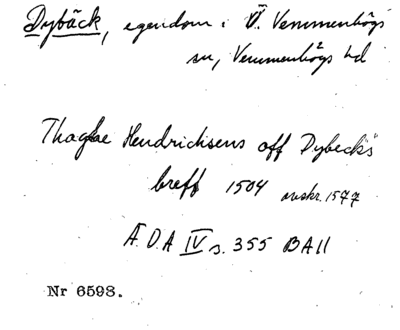 Dybäck, egendom i Ö. Vemmenhögs
sn, Vemmenhögs hd
Thaghe Hendrichsens off Dybecks
breff 1504 avskr. 1577
Ä.D.A IV s. 355 BA11
Nr 6598.